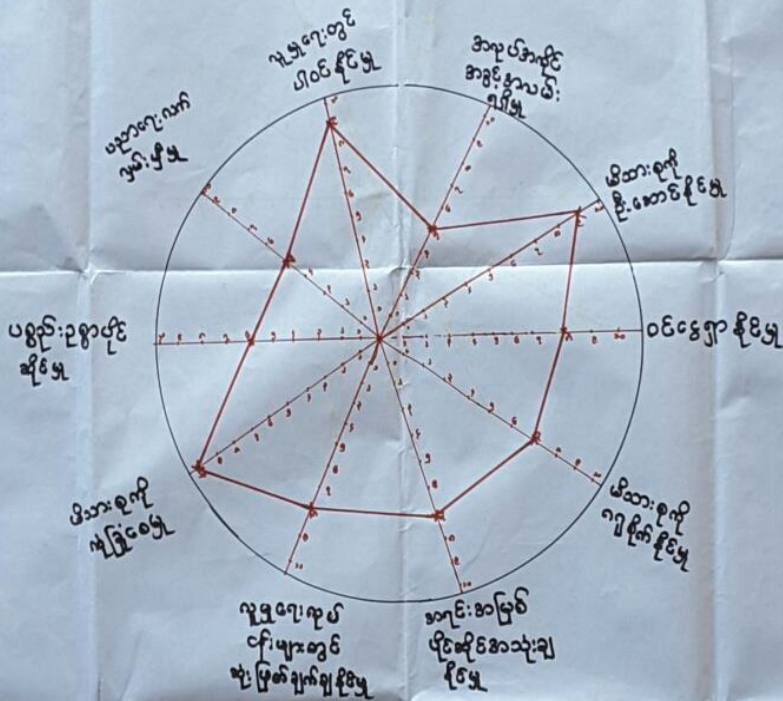 လူမှုရေးတွင်
ပါဝင်နိုင်မှု
အလုပ်အကိုင်
အခွင့်အလမ်း
ရရှိမှု
မိသားစုကို
ဦးဆောင်နိုင်မှု
ဝင်ငွေရှာနိုင်မှု
မိသားစုကို
ဂရုစိုက်နိုင်မှု
အရင်းအမြစ်
ပိုင်ဆိုင်အသုံးချ
နိုင်မှု
လူမှုရေးလုပ်
ငန်းများတွင်
ဆုံးဖြတ်ချက်ချနိုင်မှု
မိသားစုကို
လုံခြုံစေမှု
ပစ္စည်းဥစ္စာပိုင်
ဆိုင်မှု
ပညာရေးလက်
လှမ်းမှီမှု